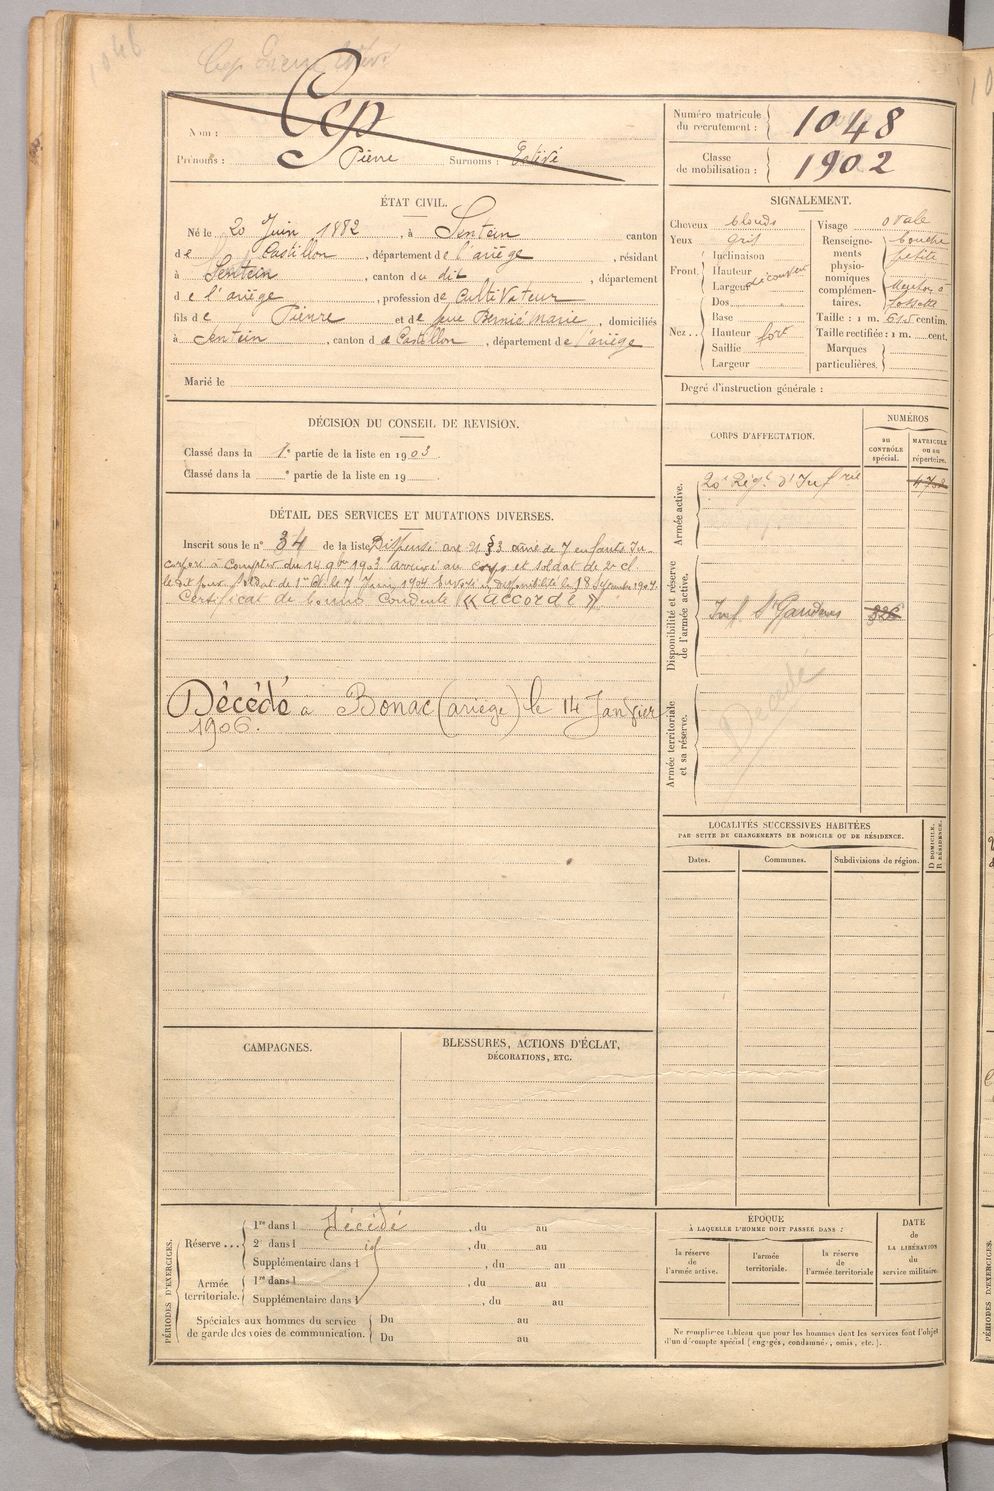 1046
Cep Pierre Estévé
Nom : Cep
Prénoms : Pierre Surnoms : Estévé
Numéro matricule du recrutement : 1048
Classe de mobilisation : 1902
ÉTAT CIVIL.
Né le 20 Juin 1882, à Sentein canton
de Castillon, département de l'ariège, résidant
à Sentein, canton du dit, département
de l'ariège, profession de cultivateur
fils de Pierre et de feue Bernié Marie, domiciliés
à Sentein, canton d e Castillon, département de l'ariège
Marié le
SIGNALEMENT.
Cheveux blonds
Yeux gris
Front. Inclinaison
Hauteur
Largeur découvert
Nez.. Dos
Base
Hauteur fort
Saillie
Largeur
Visage ovale
Renseignements physionomiques complémentaires. bouche
petite
Menton à
fossette
Taille : 1 m. 615 centim.
Taille rectifiée : 1 m. cent.
Marques particulières.
Degré d'instruction générale :
DÉCISION DU CONSEIL DE REVISION.
Classé dans la 1e partie de la liste en 1903
Classé dans la e partie de la liste en 19
DÉTAIL DES SERVICES ET MUTATIONS DIVERSES.
Inscrit sous le n° 34 de la liste Dispensé art 21 § 3 ainé de 7 enfants In-
corporé à compter du 14 9bre 1903 arrivé au corps et soldat de 2e cl.
le dit jour. Soldat de 1re Cl. le 7 Juin 1904 Envoyé en disponibilité le 18 Septembre 1904.
Certificat de bonne conduite « accordé ».
Décédé à Bonac (ariège) le 14 Janvier
1906.
CORPS D'AFFECTATION.
NUMÉROS
au CONTRÔLE spécial.
MATRICULE ou au répertoire.
Armée active.
20e Régt d'Infrie
Disponibilité et réserve de l'armée active.
Inf St Gaudens 326
Armée territoriale et sa réserve.
Décédé
LOCALITÉS SUCCESSIVES HABITÉES
PAR SUITE DE CHANGEMENTS DE DOMICILE OU DE RÉSIDENCE.
Dates. Communes. Subdivisions de région. D DOMICILE. R RÉSIDENCE.
CAMPAGNES.
BLESSURES, ACTIONS D'ÉCLAT,
DÉCORATIONS, ETC.
PÉRIODES D'EXERCICES.
Réserve ... 1re dans l Décédé, du au
2e dans l id, du au
Supplémentaire dans l, du au
Armée territoriale. 1re dans l, du au
Supplémentaire dans l, du au
Spéciales aux hommes du service de garde des voies de communication. Du au
Du au
ÉPOQUE
À LAQUELLE L'HOMME DOIT PASSER DANS :
la réserve de l'armée active.
l'armée territoriale.
la réserve de l'armée territoriale
DATE de LA LIBÉRATION du service militaire.
Ne remplir ce tableau que pour les hommes dont les services font l'objet
d'un décompte spécial (engagés, condamnés, omis, etc.).
PÉRIODES D'EXERCICES.